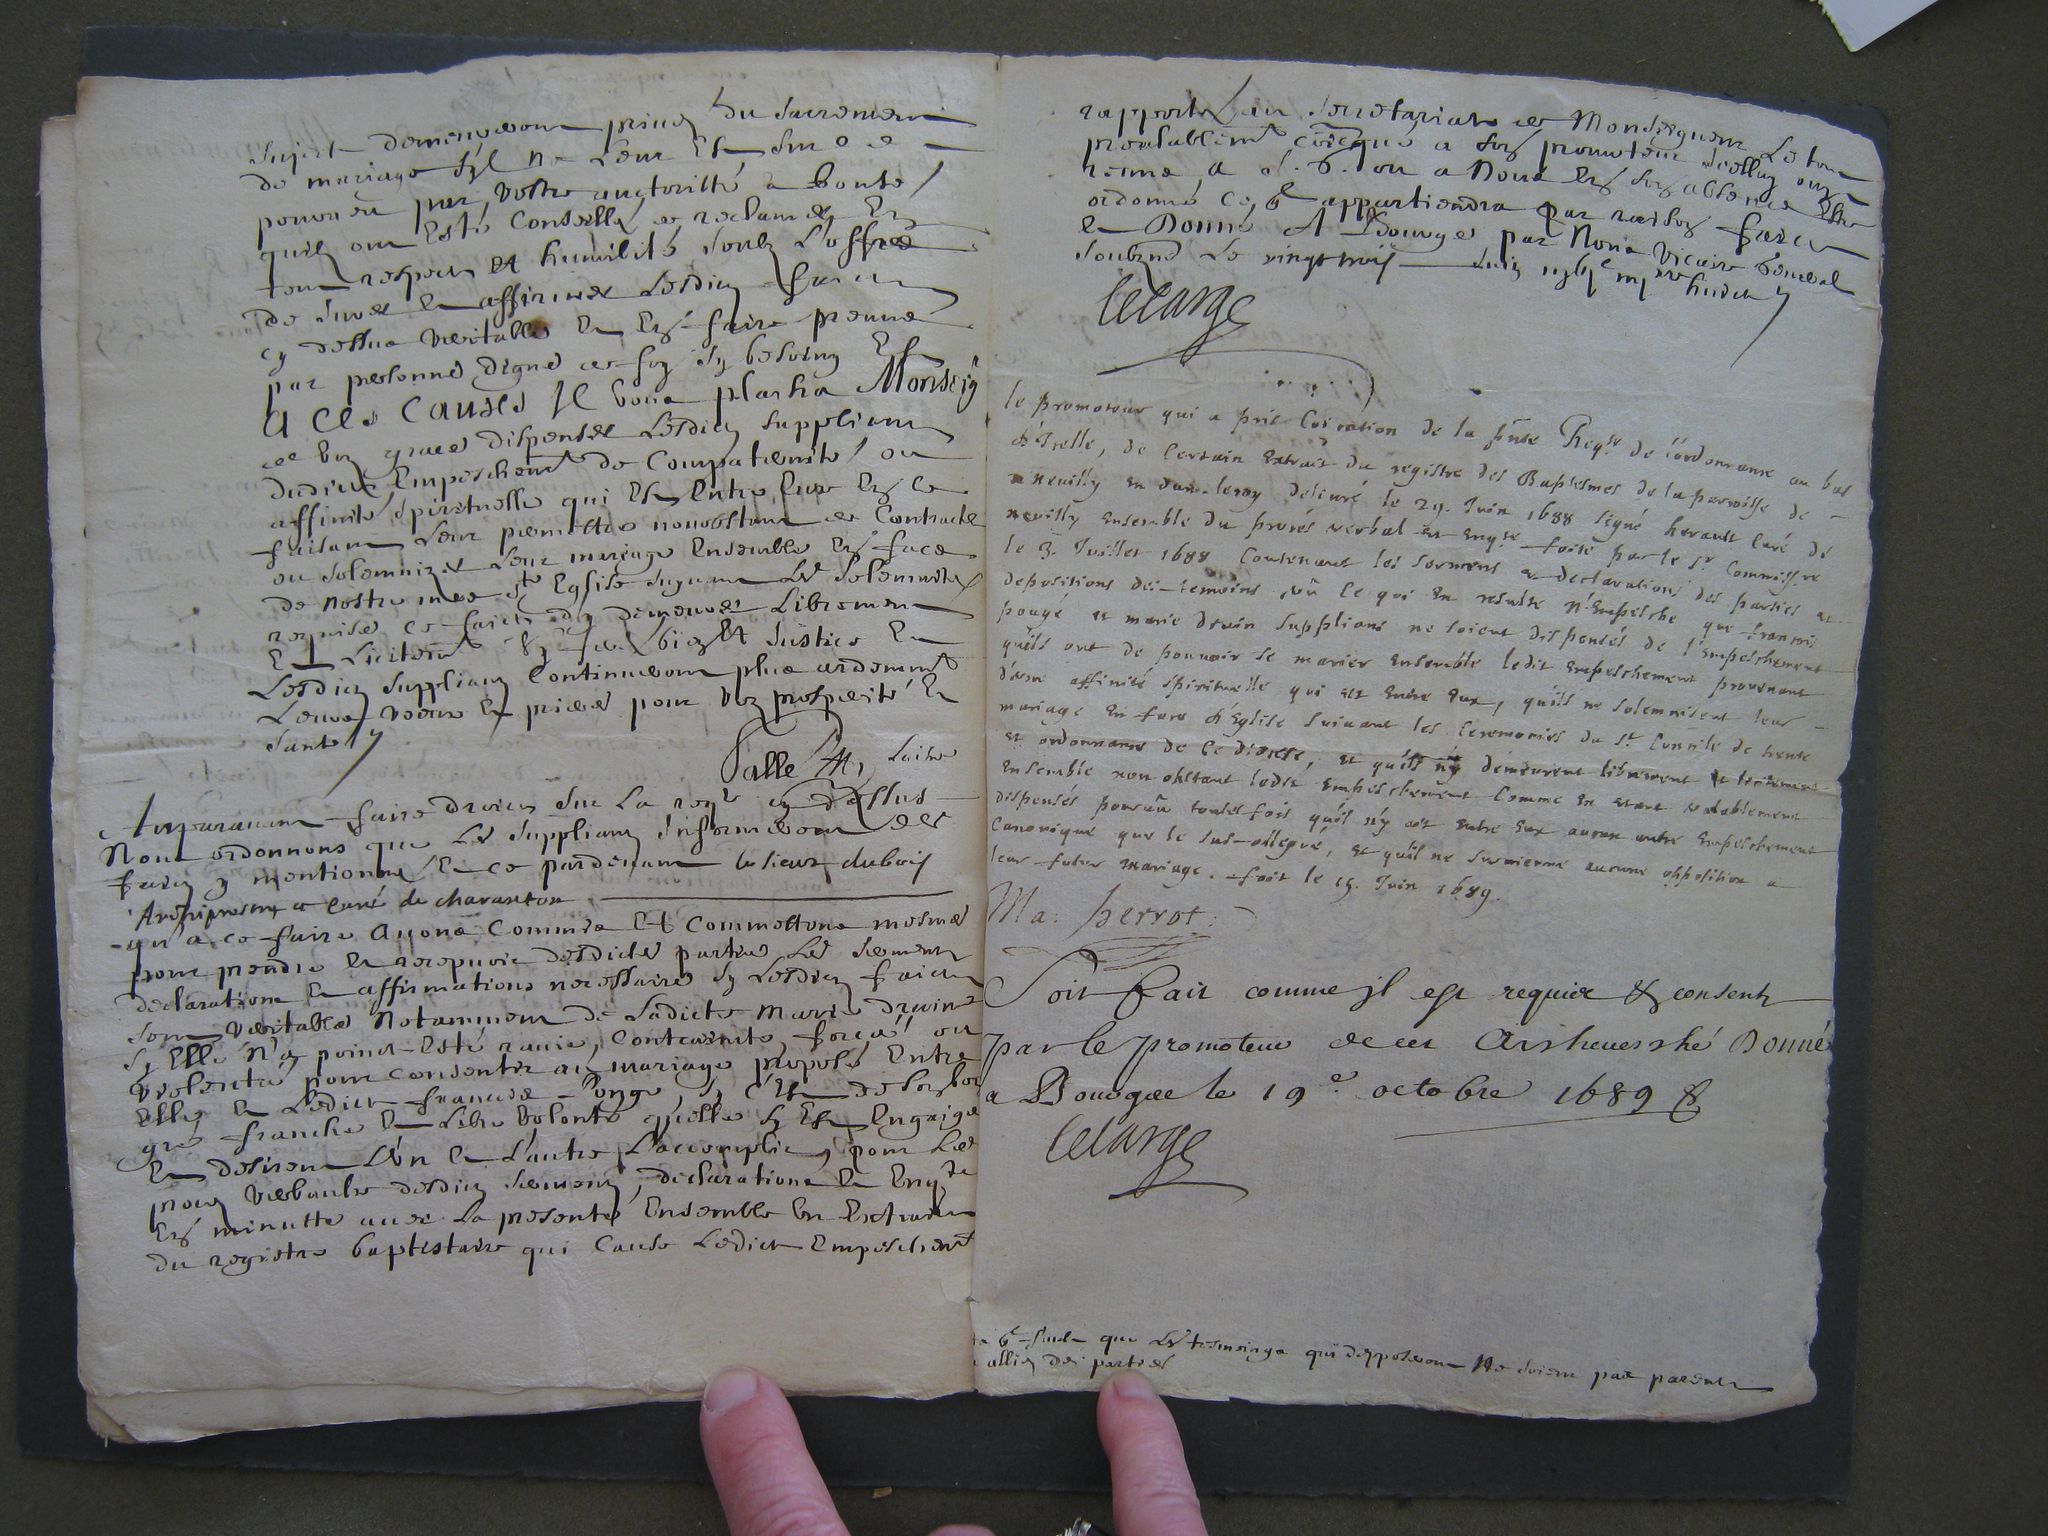 sujet demeureront privez du sacrement
de mariage s'il ne leur est sur ce
pourveu par vostre auctoritté a bonté
quilz ont esté conseillé de reclamer en
tout respect et humilité soubz l'offre
de jurer et affirmer lesdictz faictz
cy dessus veritables et en faire preuve
par personnes digne de foy sy besoing est
A Ces Causes Il vous plaira Monseigr
de voz graces dispenser lesdictz suppliants
dudict empeschemt de Compaternité ou
affinité spirituelle qui est entre eux en ce
faisant leur permettre nonobstant de Contracter
ou solemnizer leur mariage ensemble en face
de nostre mere Ste Eglise suyvant les solemnitez
requises ce faict d'y demeurer librement
Et licitemt & ferez bien et Justice Et
lesdictz suppliantz Continueront plus ardemmt
leurs voeux et prieres pour voz prosperité et
santé
Auparavant faire droict sur la reqte cy dessus
Nous ordonnons que les suppliantz informeront des
faictz y mentionnez et ce pardevant le sieur dubois
Archiprestre et curé de charanton
qu'a ce faire avons Commis Et Commettons mesmes
pour prendre et recepvoir desdictes parties les serment
declarations et affirmations necessaires sy lesdictz faictz
sont veritables Notamment de ladicte Marie drouin
sy Elle N'a point esté ravie, contrainte, forcée ou
violentée pour consentir au mariage proposé Entre
Elle et ledict francois Pougé, sy c'est de son bon
gré franche et libre volonté qu'elle sy est engaigé
Et desirent l'un et l'autre l'accomplir, pour les
procez verbaulx desdictz sermentz, declarations et enqte
En minutte avec la presente Ensemble un Extraict
du registre baptistaire qui Cause ledict Empeschemt
rapportez au secretariat de Monseigneur le tout
prealablemt coicqué a son promoteur icelluy ouy
ordonné ce q appartiendra par raison faict
et Donné A Bourges par Nous Vicaire General
soubzné le vingt trois Juin mil six cens quatre vingt huict
Lelarge
le promoteur qui a pris Coication de la pnte Reqte de l'ordonnance au bas
d'Icelle, de Certain Extrait du registre des Baptesmes de la parroisse de
neuilly en dun-leroy delivré le 29. Juin 1688 signé herault curé de
neuilly Ensemble du procés verbal et Enqte faite par le Sr Commissre
le 3. Juillet 1688 Contenant les sermens et declarations des parties et
depositions des temoins, vû ce qui en resulte N'Empesche que francois
pougé et marie drouin supplians ne soient dispensés de l'empeschement
qu'ils ont de pouvoir se marier Ensemble ledit Empeschement provenant
d'une affinité spirituelle qui est entre eux, qu'ils ne solemnisent leur
mariage En face d'Eglise suivant les Ceremonies du St Concile de trente
et ordonnances de ce diocese, et qu'ils n'y demeurent librement et licitement
Ensemble non obstant ledit Empeschement Comme en etant valablement
dispensés pourvû toutesfois qu'il n'y ait entre eux aucun autre Empeschement
Canonique que le sus-allegué, et qu'il ne survienne aucune opposition a
leur futur mariage. fait le 15. Juin 1689.
Ma: perrot:
Soit fait comme jl est requies & consenty
par le promoteur de cet Archeuesché Donné
a Bourges le 19e octobre 1689 &
Lelarge
que les tesmoings qui depposeront Ne soient pas parents
allies des parties